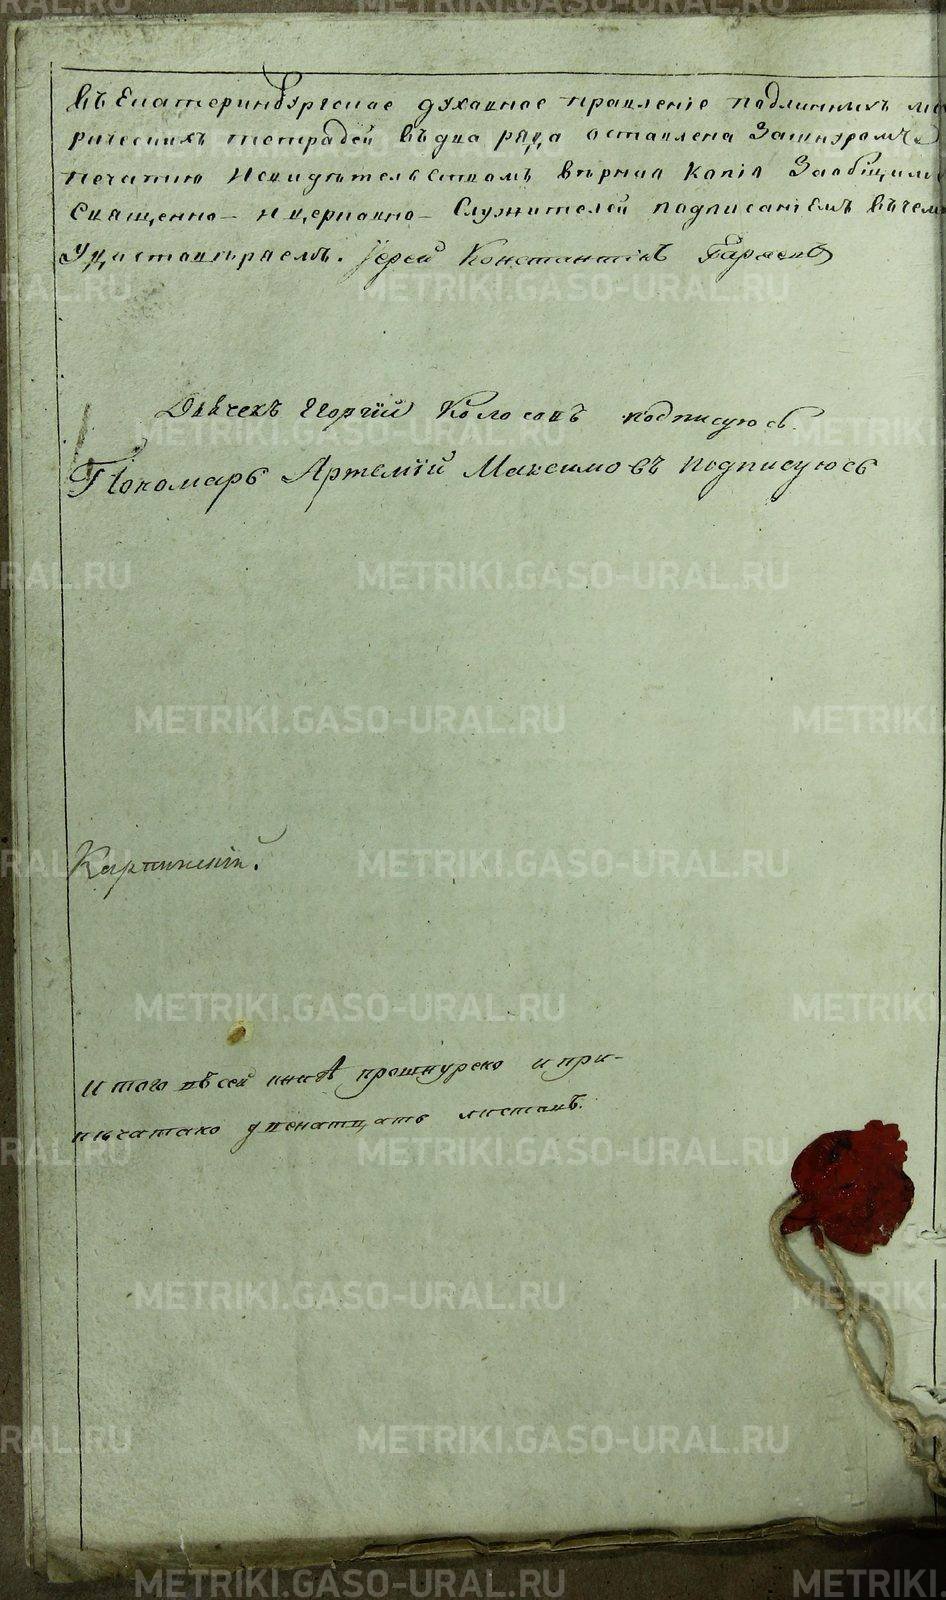 въ Екатеринбургское духовное правленіе подлинныхъ ме
рическихъ тетрадей въ два ряда оставлена за шнуромъ и
печатию и свидѣтельствомъ вѣрная копія за общимъ
священно- и церковно- служителей подписаніемъ въ чемъ
удостовѣряемъ. Іерей Константінъ
Дьячекъ Георгій Колосовъ подписуюсь.
Пономарь Артемій Максимовъ подписуюсь
итого въ сей книгѣ прошнурено и при-
печатано двенатцать листовъ.
METRIKI.GASO-URAL.RU